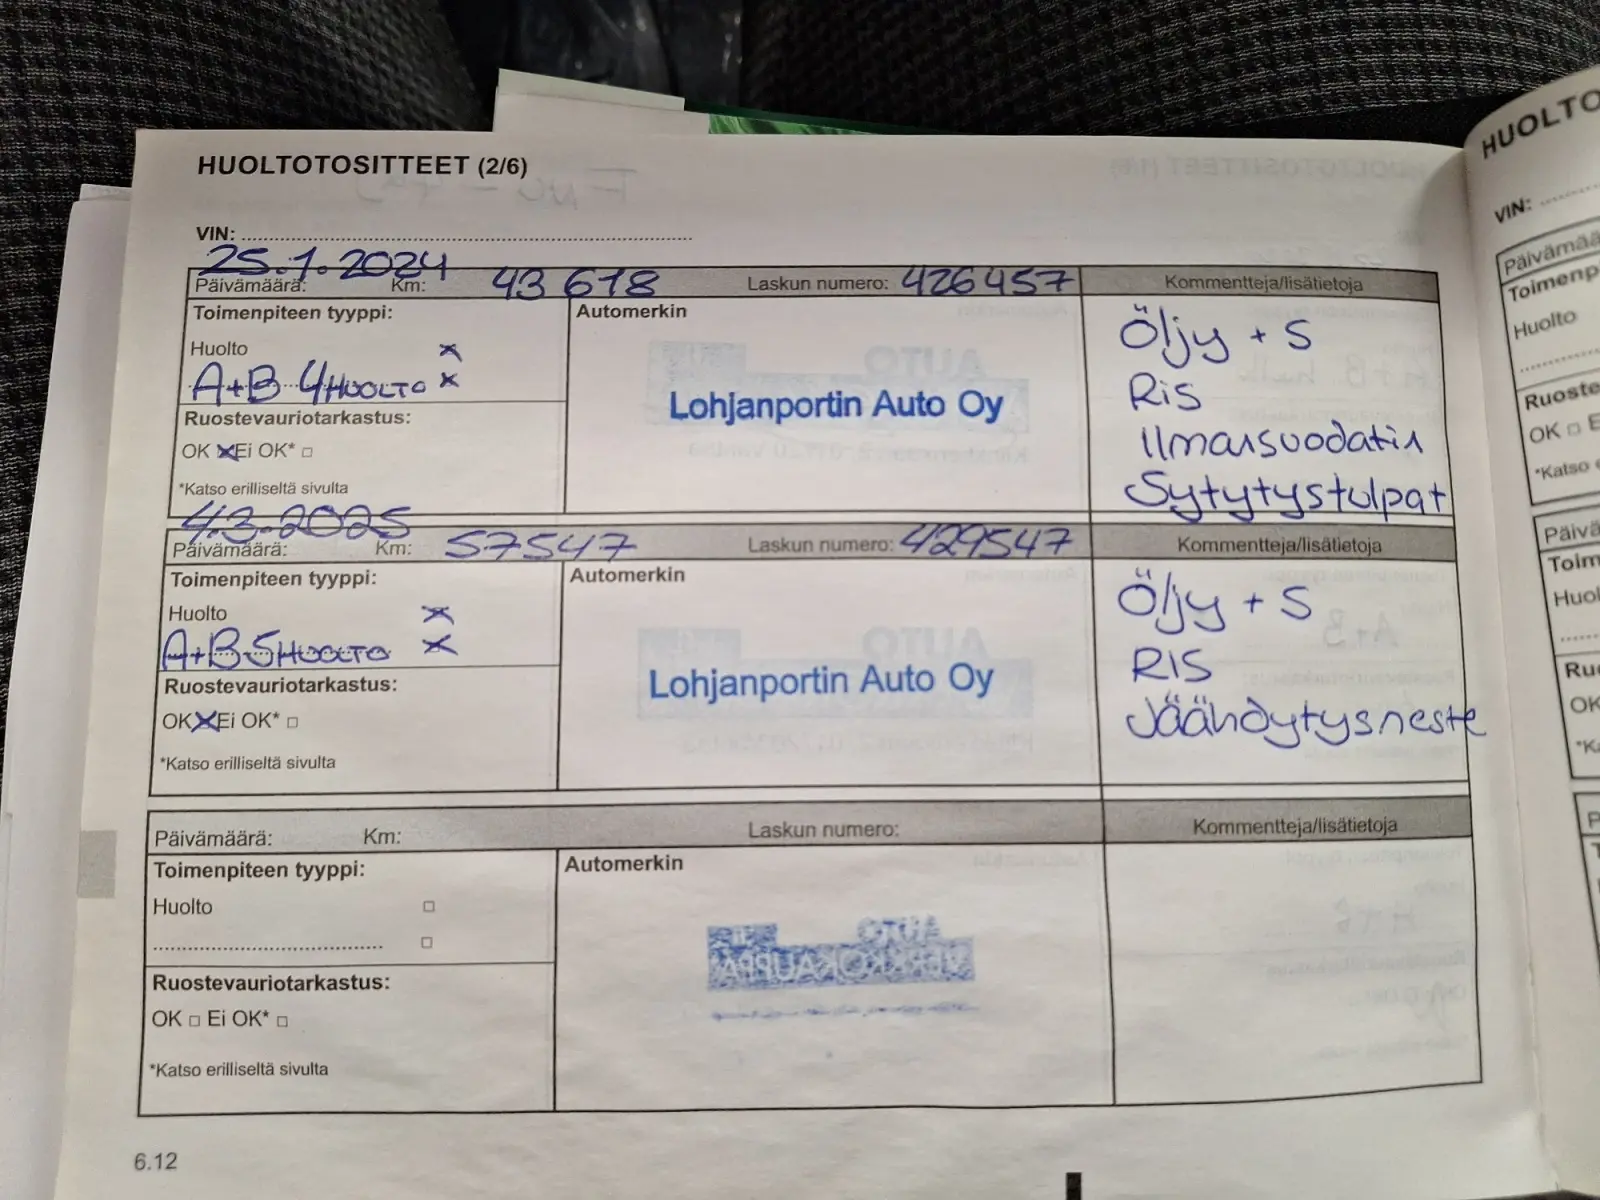 HUOLTOTOSITTEET (2/6)
VIN:
25.1.2024
Päivämäärä: Km: 43 618 Laskun numero: 426457 Kommentteja/lisätietoja
Toimenpiteen tyyppi: Automerkin
Huolto x
A+B 4HUOLTO x
Ruostevauriotarkastus:
OK x Ei OK* □
*Katso erilliseltä sivulta
Lohjanportin Auto Oy
Öljy + S
RiS
Ilmansuodatin
Sytytystulpat
4.3.2025
Päivämäärä: Km: 57547 Laskun numero: 429547 Kommentteja/lisätietoja
Toimenpiteen tyyppi: Automerkin
Huolto x
A+B 5HUOLTO x
Ruostevauriotarkastus:
OK x Ei OK* □
*Katso erilliseltä sivulta
Lohjanportin Auto Oy
Öljy + S
RIS
Jäähdytysneste
Päivämäärä: Km: Laskun numero: Kommentteja/lisätietoja
Toimenpiteen tyyppi: Automerkin
Huolto □
□
Ruostevauriotarkastus:
OK □ Ei OK* □
*Katso erilliseltä sivulta
6.12
HUOLTO
VIN:
Huolto
OK □
*Katso